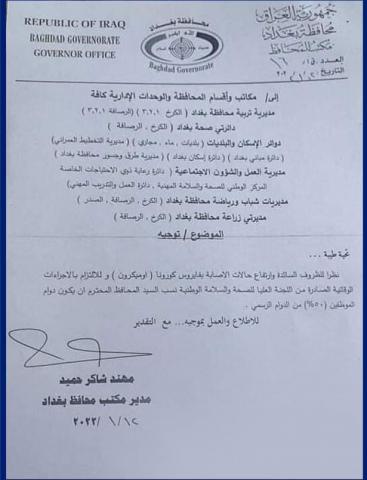 REPUBLIC OF IRAQ
BAGHDAD GOVERNORATE
GOVERNOR OFFICE
محافظة بغداد
الله أكبر
Baghdad Governorate
جمهورية العراق
محافظة بغداد
مكتب المحافظ
العدد
التاريخ
إلى/ مكاتب وأقسام المحافظة والوحدات الإدارية كافة
مديرية تربية محافظة بغداد ( الكرخ ٣،٢،١ ) (الرصافة ٣،٢،١ )
دائرتي صحة بغداد ( الكرخ ، الرصافة )
دوائر الإسكان والبلديات ( بلديات ، ماء ، مجاري ) ( مديرية التخطيط العمراني )
( دائرة مباني بغداد ) ( دائرة إسكان بغداد ) ( مديرية طرق وجسور محافظة بغداد )
مديرية العمل والشؤون الاجتماعية ( دائرة رعاية ذوي الاحتياجات الخاصة
المركز الوطني للصحة والسلامة المهنية ، دائرة العمل والتدريب المهني)
مديريات شباب ورياضة محافظة بغداد ( الكرخ ، الرصافة ، الصدر )
مديرتي زراعة محافظة بغداد ( الكرخ ، الرصافة )
الموضوع / توجيه
تحية طيبة ...
نظرا للظروف السائدة وارتفاع حالات الاصابة بفايروس كورونا ( اوميكرون ) وللالتزام بالاجراءات
الوقائية الصادرة من اللجنة العليا للصحة والسلامة الوطنية نسب السيد المحافظ المحترم ان يكون دوام
الموظفين (٥٠%) من الدوام الرسمي .
للاطلاع والعمل بموجبه ... مع التقدير
مهند شاكر حميد
مدير مكتب محافظ بغداد
٢٠٢٢/ ١ / ١٢